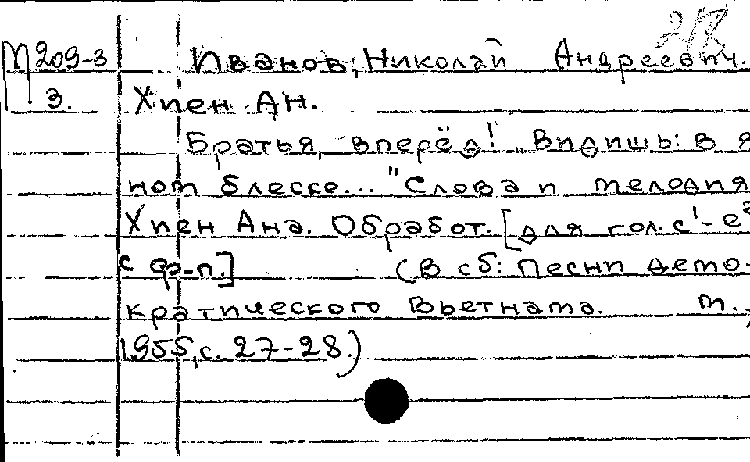 М 209-3 Иванов, Николай Андреевич.
3. Хиен Ан.
Братья, вперёд! „Видишь: в я
ном блеске..." Слова и мелодия
Хиен Ана. Обработ. [для гол. с¹-е²
с ф-п.] (В сб: Песни демо-
кратического Вьетнама. М.,
1955, с. 27-28.)